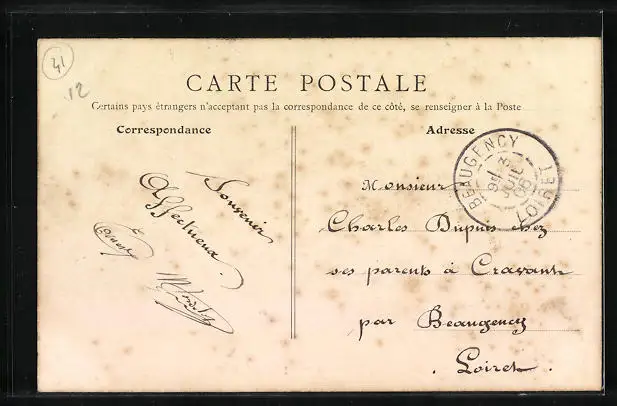 41
12
CARTE POSTALE
Certains pays étrangers n'acceptant pas la correspondance de ce côté, se renseigner à la Poste
Correspondance
Adresse
Souvenir
Affectueux
BEAUGENCY
LOIRET
Monsieur
Charles Dupuis chez
ses parents à Cravant
par Beaugency
. Loiret .